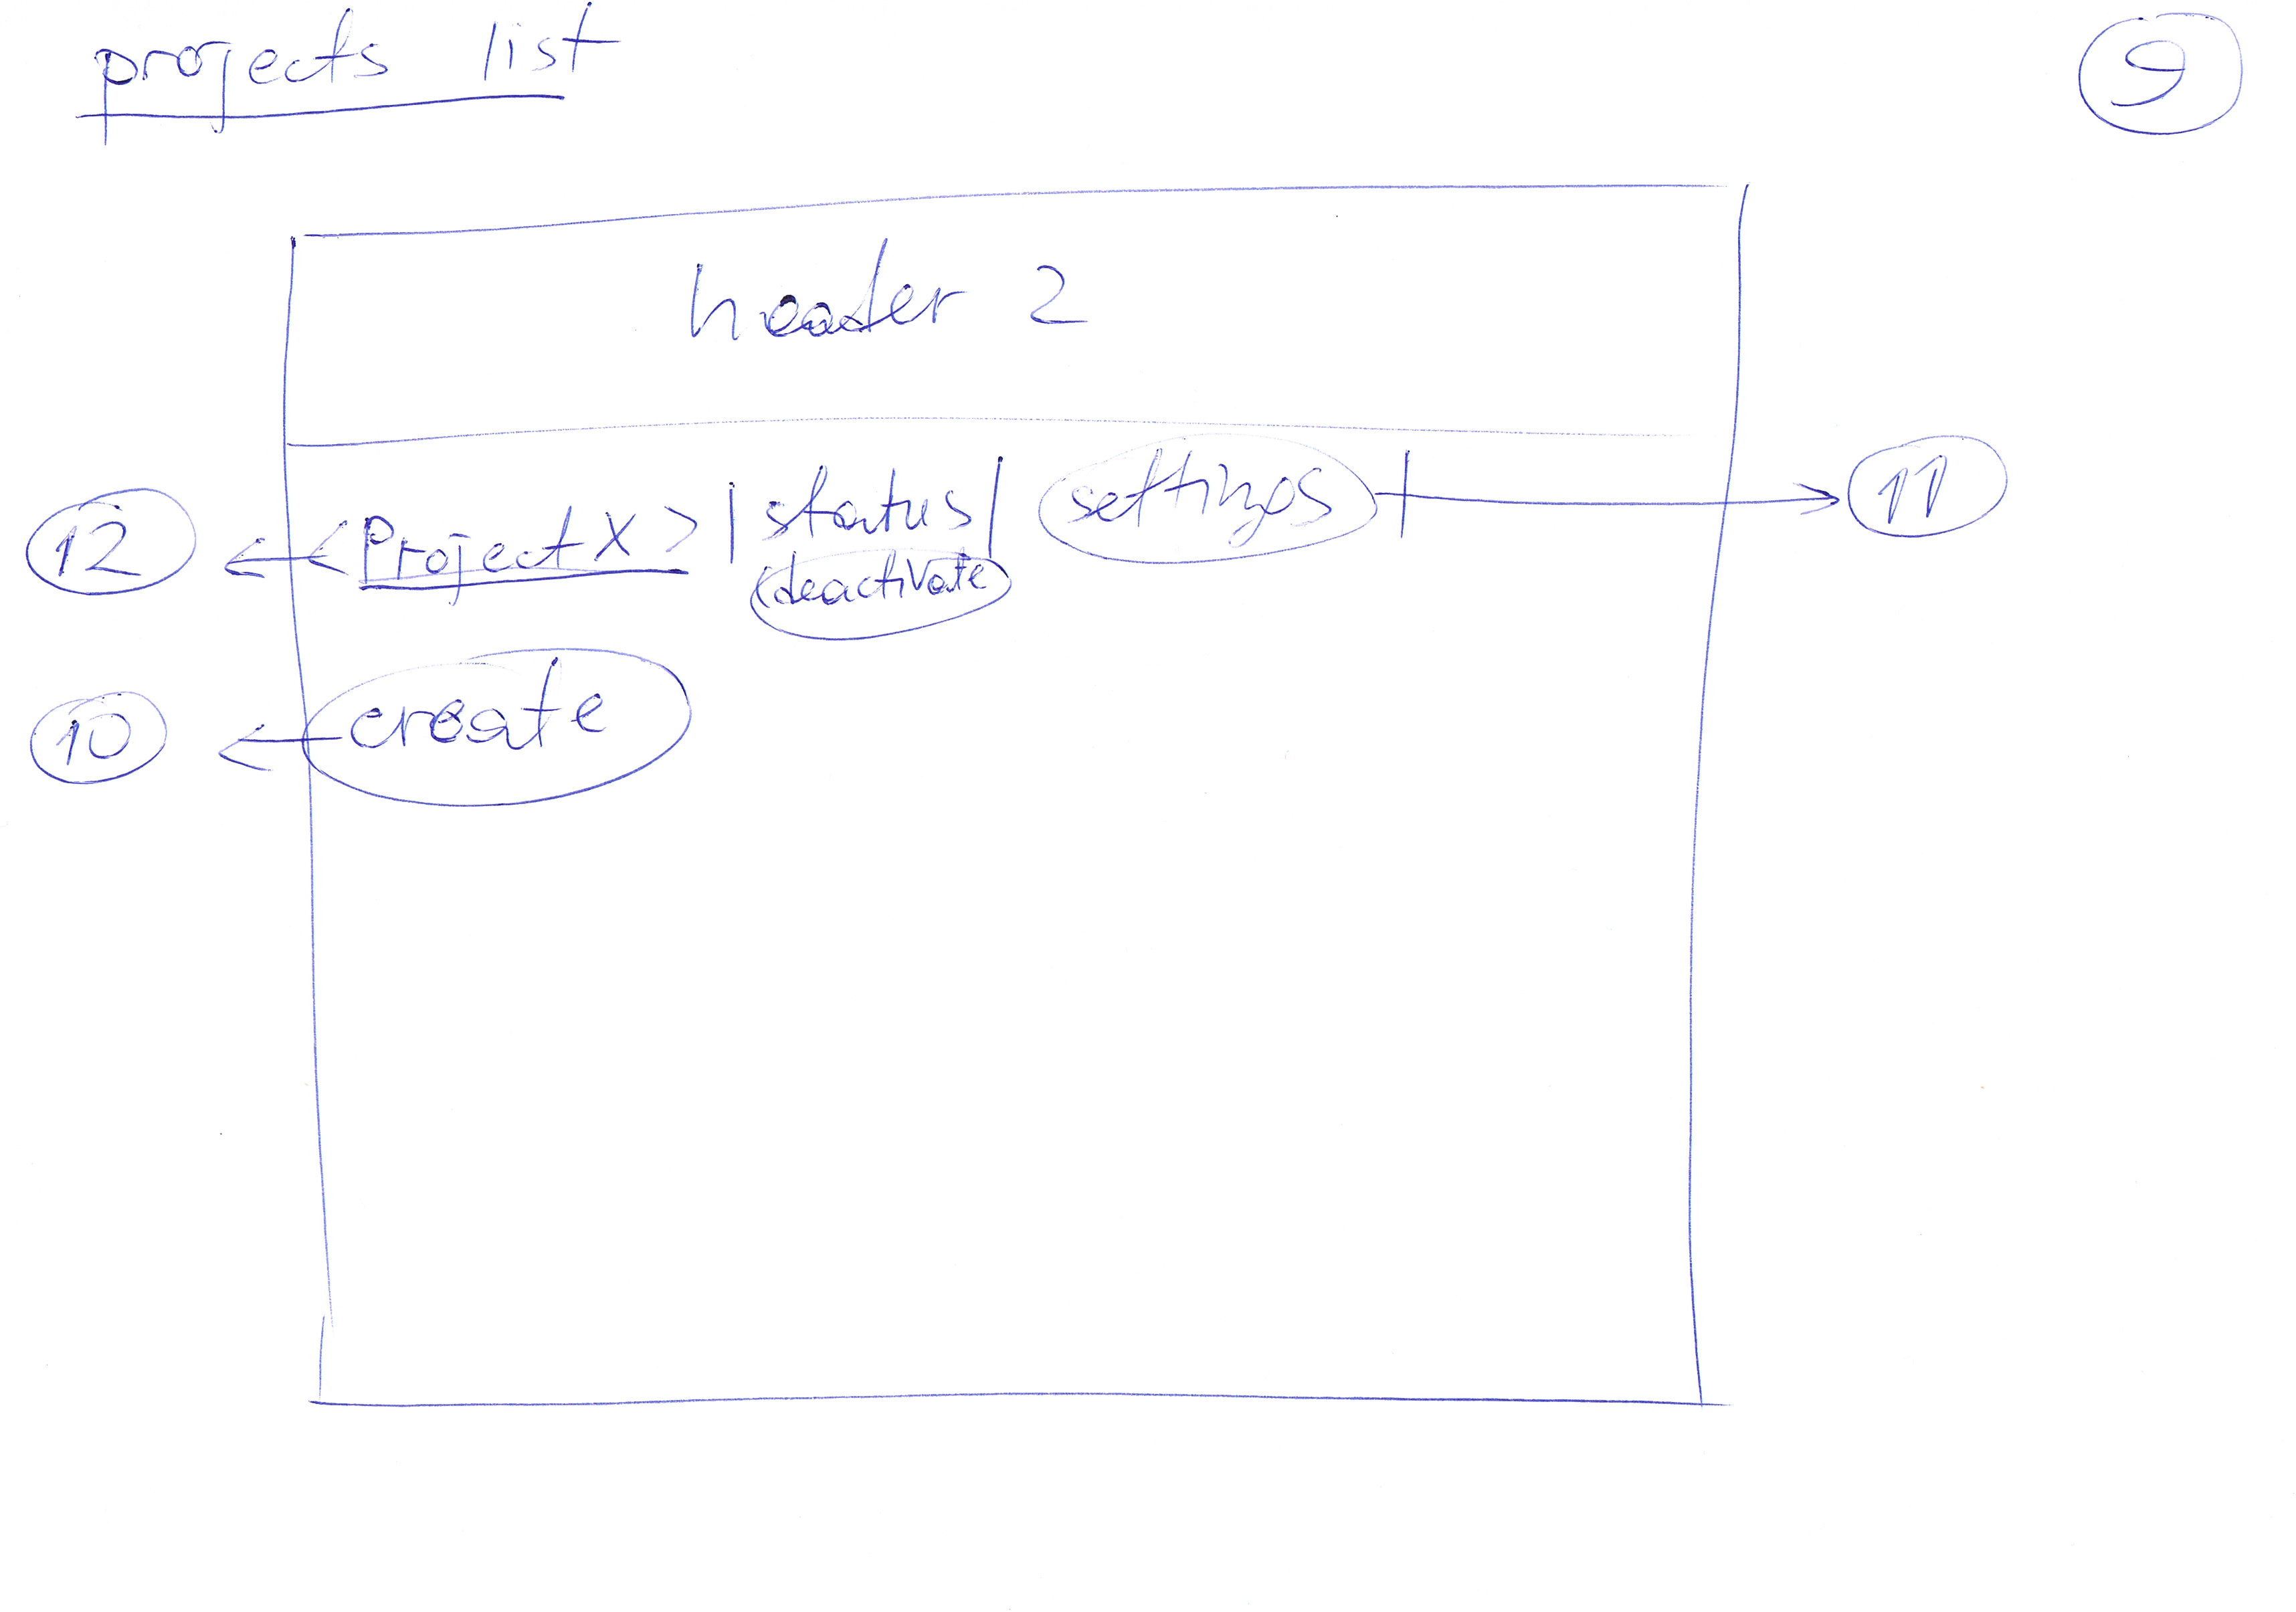 projects list 9
header 2
12 <Project X> | status | settings | 11
deactivate
10 create